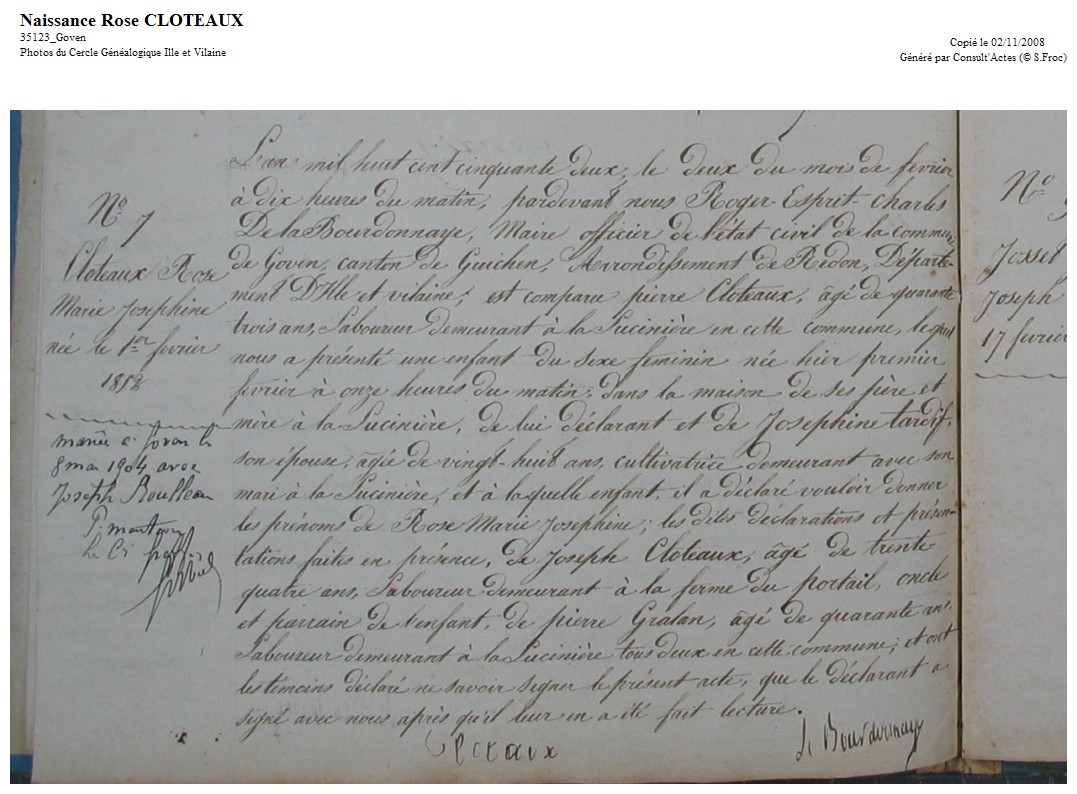 Naissance Rose CLOTEAUX
35123_Goven
Photos du Cercle Généalogique Ille et Vilaine
Copié le 02/11/2008
Généré par Consult'Actes (© S.Froc)
N° 7
Cloteaux Rose
Marie Josephine
née le 1er fevrier
1852
mariée à Goven le
8 mai 1904 avec
Joseph Roulleau
L'an mil huit cent cinquante deux, le deux du mois de fevrier
à dix heures du matin, pardevant nous Roger-Esprit-charles
De la Bourdonnaye, Maire officier de l'état civil de la commune
de Goven, canton de Guichen, Arrondissement de Redon, Départe-
ment D'Ille et vilaine, est comparu pierre Cloteaux, âgé de quarante
trois ans, Laboureur demeurant à la Lucinière en cette commune, lequel
nous a présenté une enfant du sexe feminin née hier premier
fevrier à onze heures du matin, dans la maison de ses père et
mère à la Lucinière, de lui déclarant et de Josephine tardif,
son épouse, âgée de vingt-huit ans, cultivatrice demeurant avec son
mari à la Lucinière, et à laquelle enfant, il a déclaré vouloir donner
les prénoms de Rose Marie Josephine; les dites déclarations et présen-
tations faites en présence, de Joseph Cloteaux, âgé de trente-
quatre ans, Laboureur demeurant à la ferme du portail, oncle
et parrain de l'enfant, de pierre Gralan, âgé de quarante ans,
Laboureur demeurant à la Lucinière tous deux en cette commune; et ont
les témoins déclaré ne savoir signer le présent acte, que le déclarant a
signé avec nous après qu'il leur en a été fait lecture.
N°
Josset
Joseph
17 fevrier